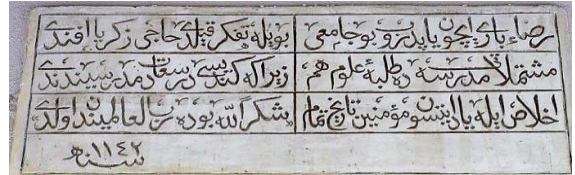 رضاء باری ایچون یاپدیروب بو جامعی بویله تفکر قیلدی حاجی زکریا افندی
مشتملاً مدرسه ده طلبهٔ علوم هم زیرا که کندیسی درسعادت مدرسیندندی
اخلاص ایله یاد ایتسون مؤمنین تاریخ تمام شکر الله بوده رب العالمیندن اولدی
سنه ١١٤٢